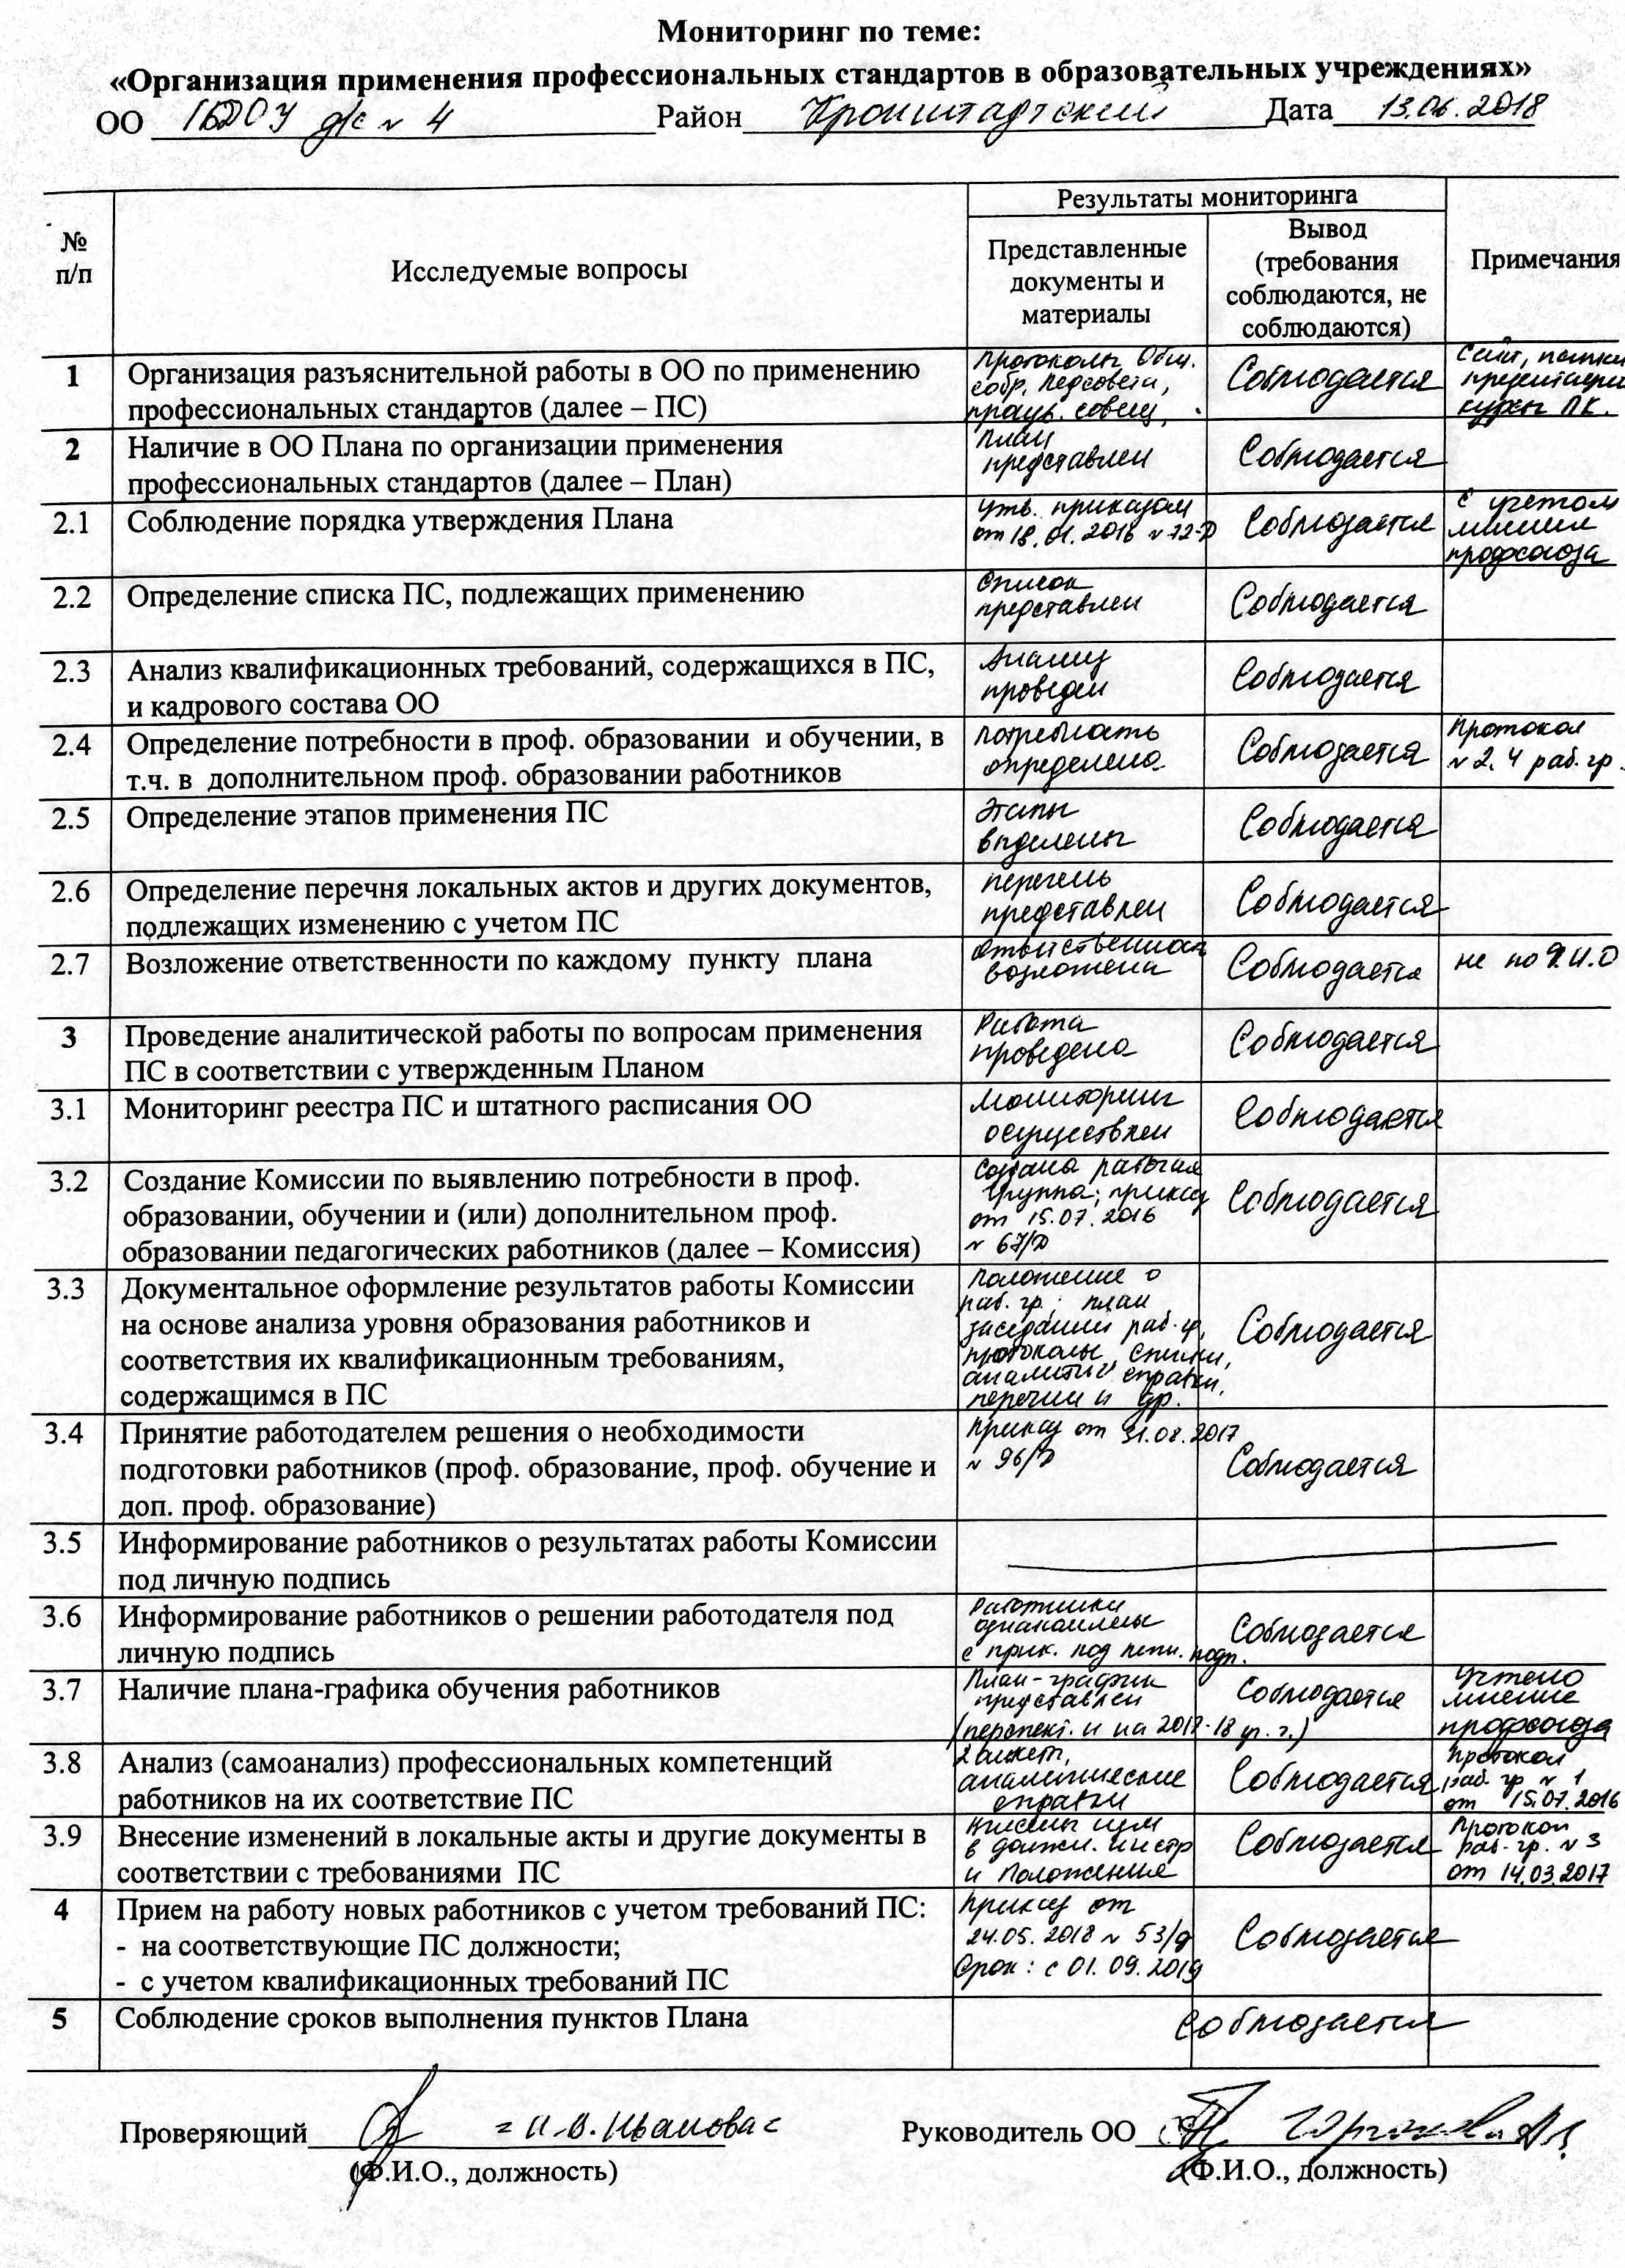 Мониторинг по теме:
«Организация применения профессиональных стандартов в образовательных учреждениях»
ОО ГБДОУ д/с № 4 Район Кронштадтский Дата 13.06.2018
№ п/п
Исследуемые вопросы
Результаты мониторинга
Представленные документы и материалы
Вывод (требования соблюдаются, не соблюдаются)
Примечания
1
Организация разъяснительной работы в ОО по применению
профессиональных стандартов (далее – ПС)
Протоколы Общ.
собр. педсовета,
совещ.
Соблюдается
Сайт, папки
презентации
курсы ПК.
2
Наличие в ОО Плана по организации применения
профессиональных стандартов (далее – План)
План
представлен
Соблюдается
2.1
Соблюдение порядка утверждения Плана
утв. приказом
от 18.01.2016 № 12-Д
Соблюдается
с учетом
мнения
профсоюза
2.2
Определение списка ПС, подлежащих применению
Список
представлен
Соблюдается
2.3
Анализ квалификационных требований, содержащихся в ПС,
и кадрового состава ОО
Анализ
проведен
Соблюдается
2.4
Определение потребности в проф. образовании и обучении, в
т.ч. в дополнительном проф. образовании работников
потребность
определена
Соблюдается
Протокол
№ 2, 4 раб. гр.
2.5
Определение этапов применения ПС
Этапы
выделены
Соблюдается
2.6
Определение перечня локальных актов и других документов,
подлежащих изменению с учетом ПС
перечень
представлен
Соблюдается
2.7
Возложение ответственности по каждому пункту плана
ответственность
возложена
Соблюдается
не по Ф.И.О
3
Проведение аналитической работы по вопросам применения
ПС в соответствии с утвержденным Планом
Работа
проведена
Соблюдается
3.1
Мониторинг реестра ПС и штатного расписания ОО
Мониторинг
осуществлен
Соблюдается
3.2
Создание Комиссии по выявлению потребности в проф.
образовании, обучении и (или) дополнительном проф.
образовании педагогических работников (далее – Комиссия)
Создана рабочая
группа; приказ
от 15.07.2016
№ 67/Д
Соблюдается
3.3
Документальное оформление результатов работы Комиссии
на основе анализа уровня образования работников и
соответствия их квалификационным требованиям,
содержащимся в ПС
Положение о
раб. гр.; план
заседаний раб. гр,
протоколы, списки,
аналитич справки,
перечни и др.
Соблюдается
3.4
Принятие работодателем решения о необходимости
подготовки работников (проф. образование, проф. обучение и
доп. проф. образование)
приказ от 31.08.2017
№ 96/Д
Соблюдается
3.5
Информирование работников о результатах работы Комиссии
под личную подпись
3.6
Информирование работников о решении работодателя под
личную подпись
Работники
ознакомлены
с прик. под личн. подп.
Соблюдается
3.7
Наличие плана-графика обучения работников
План-график
представлен
(перспект. и на 2017-18 уч. г.)
Соблюдается
Учтено
мнение
профсоюза
3.8
Анализ (самоанализ) профессиональных компетенций
работников на их соответствие ПС
2 анкет,
аналитические
справки
Соблюдается
протокол
раб. гр № 1
от 15.07.2016
3.9
Внесение изменений в локальные акты и другие документы в
соответствии с требованиями ПС
Внесены изм
в должн. инстр
и Положения
Соблюдается
Протокол
раб. гр. № 3
от 14.03.2017
4
Прием на работу новых работников с учетом требований ПС:
- на соответствующие ПС должности;
- с учетом квалификационных требований ПС
приказ от
24.05.2018 № 53/д
Срок: с 01.09.2019
Соблюдается
5
Соблюдение сроков выполнения пунктов Плана
Соблюдается
Проверяющий И.В. Иванова Руководитель ОО
(Ф.И.О., должность) (Ф.И.О., должность)